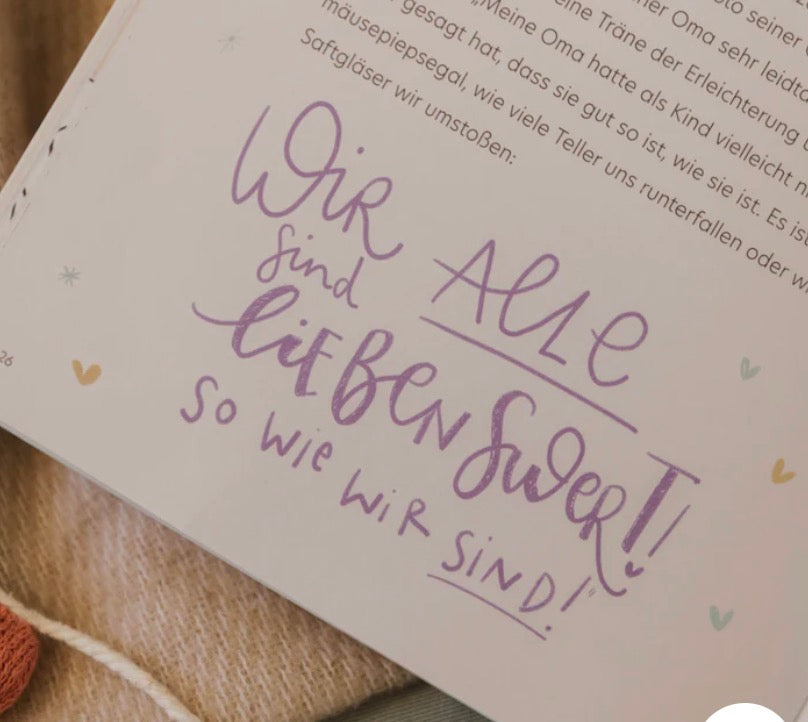 oto seiner
eine Träne der Erleichterung
„Meine Oma hatte als Kind vielleicht
gesagt hat, dass sie gut so ist, wie sie ist. Es ist
mäusepiepsegal, wie viele Teller uns runterfallen oder
Saftgläser wir umstoßen:
WiR ALLE
sind
LiEBENSWERT!
SO WiE WiR SiND!“
26